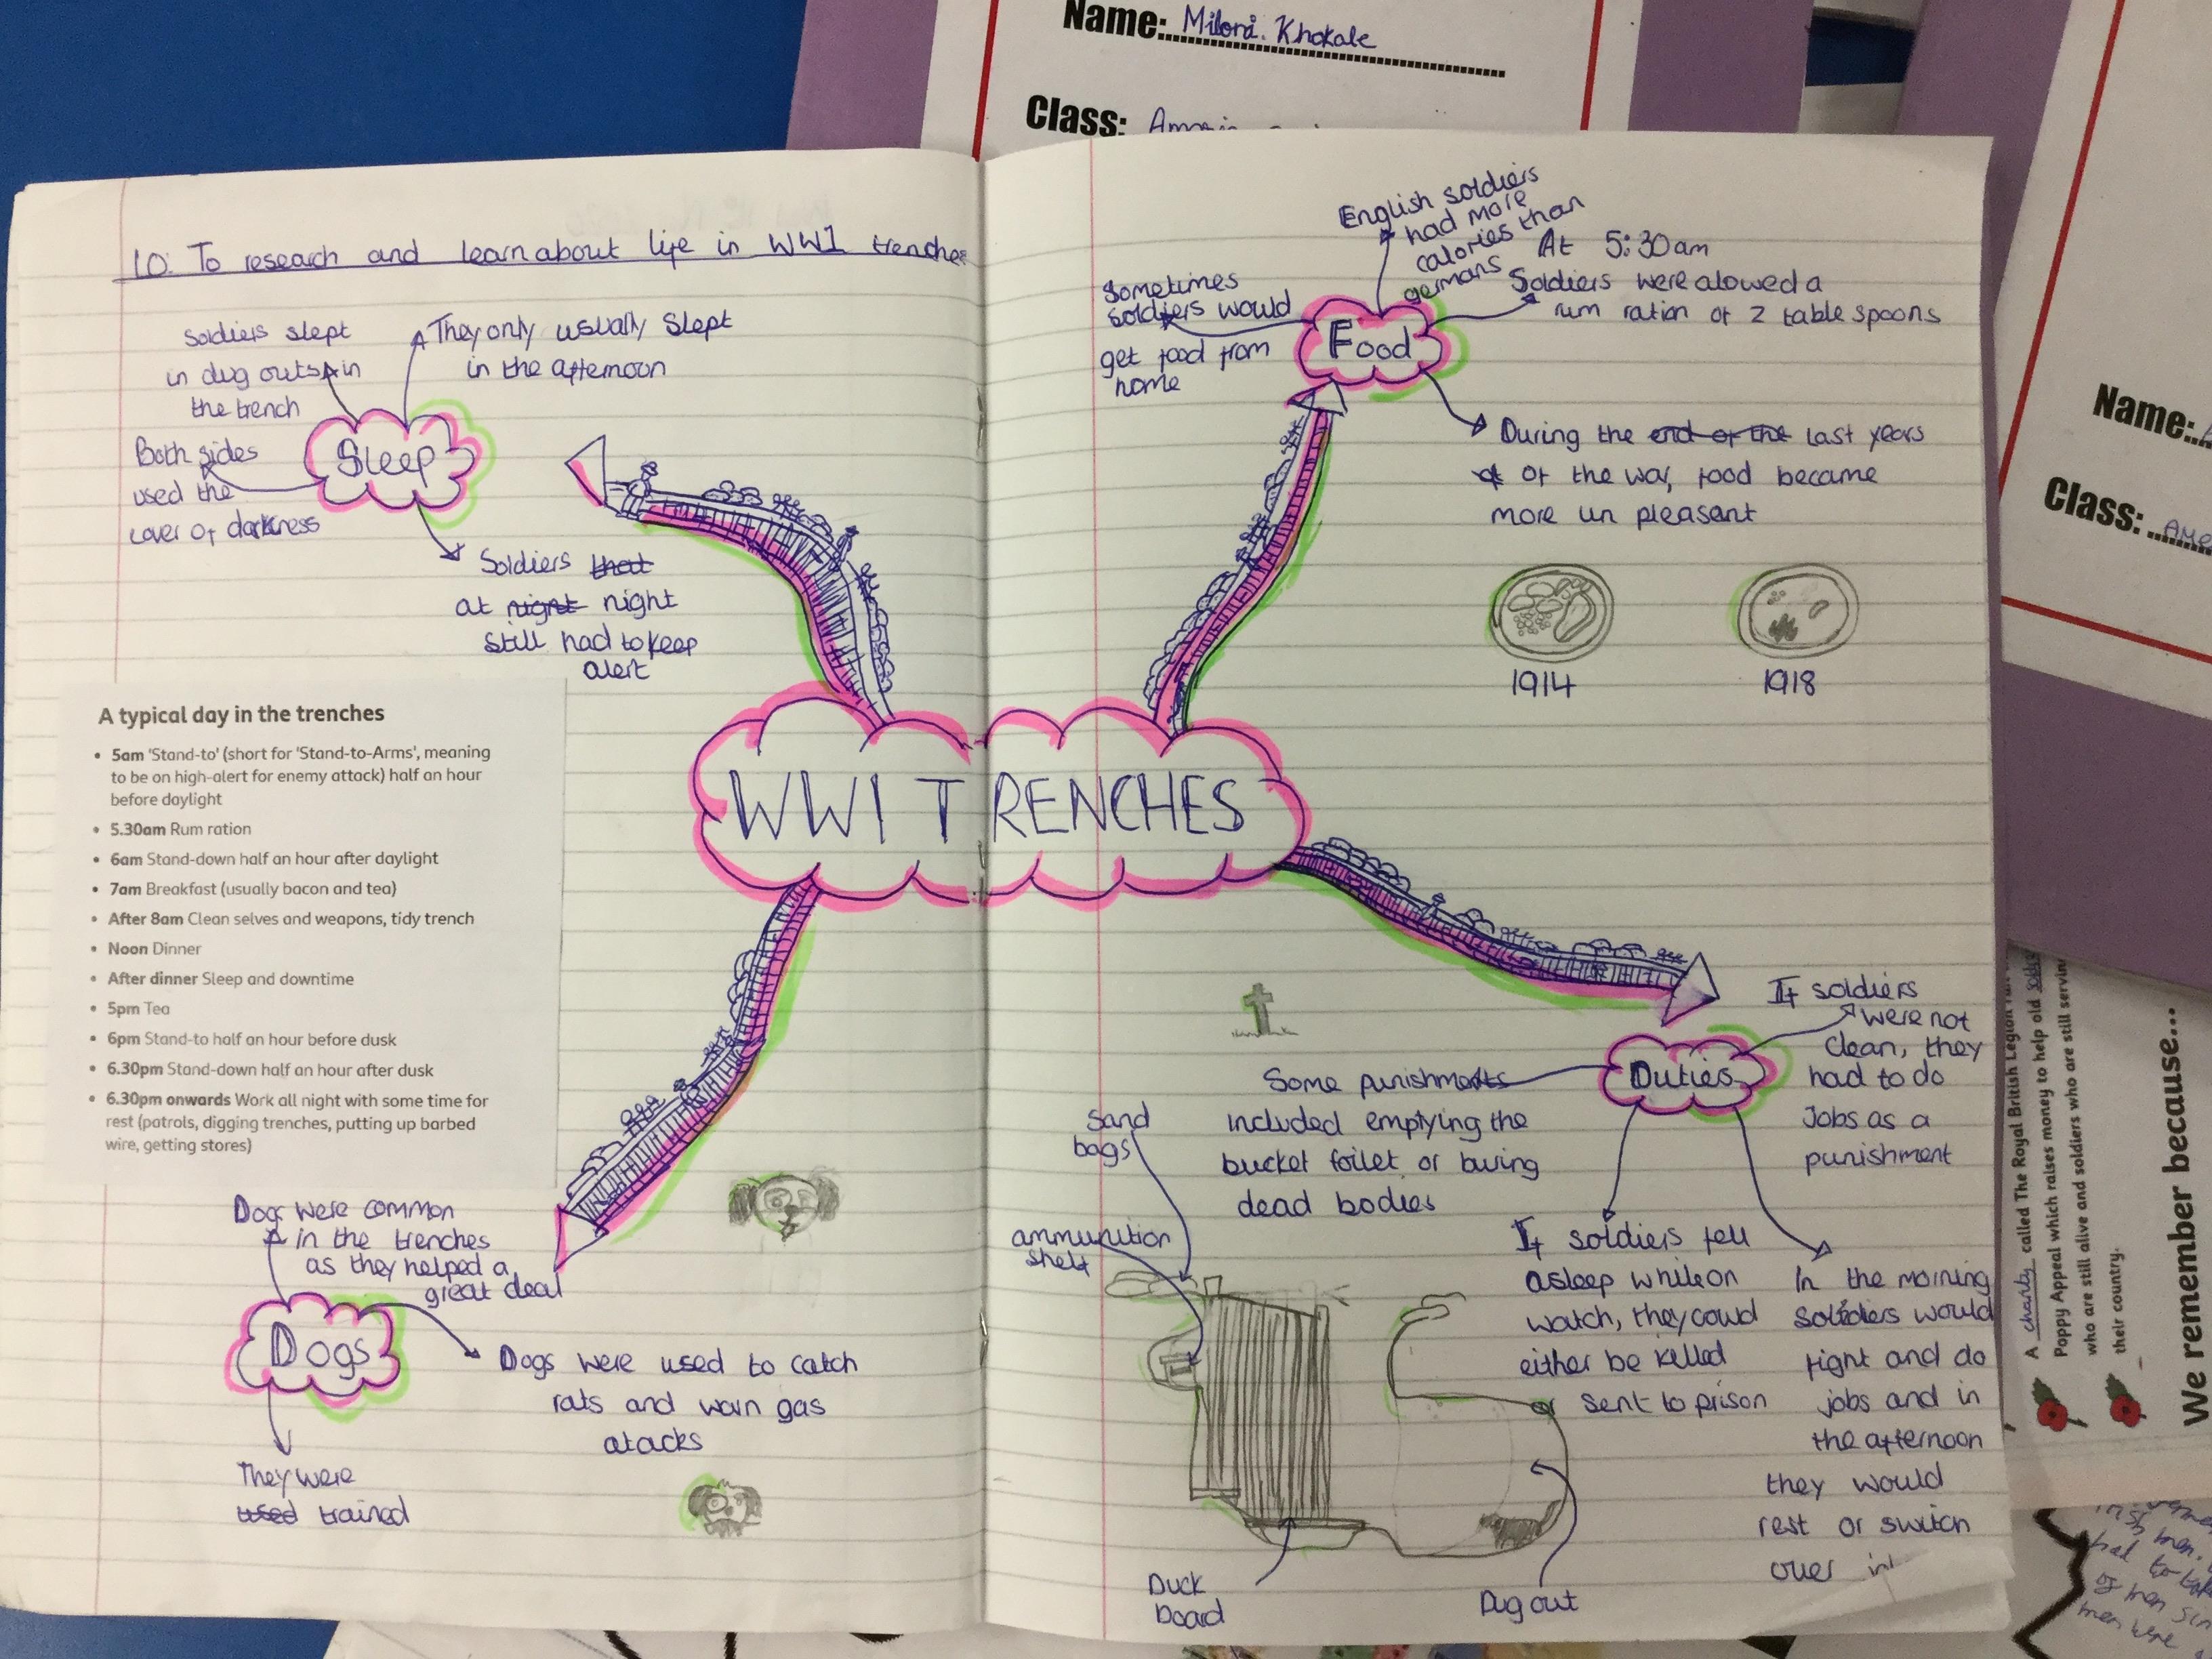 Name: Miloni. Khokale
Class:
Name:
Class:
LO: To research and learn about life in WW1 trenches
Soldiers slept
in dug outs in
the trench
They only usually slept
in the afternoon
Sleep
Both sides
used the
cover of darkness
Soldiers that
at night night
still had to keep
alert
A typical day in the trenches
• 5am 'Stand-to' (short for 'Stand-to-Arms', meaning
to be on high-alert for enemy attack) half an hour
before daylight
• 5.30am Rum ration
• 6am Stand-down half an hour after daylight
• 7am Breakfast (usually bacon and tea)
• After 8am Clean selves and weapons, tidy trench
• Noon Dinner
• After dinner Sleep and downtime
• 5pm Tea
• 6pm Stand-to half an hour before dusk
• 6.30pm Stand-down half an hour after dusk
• 6.30pm onwards Work all night with some time for
rest (patrols, digging trenches, putting up barbed
wire, getting stores)
WW1 TRENCHES
Dogs were common
in the trenches
as they helped a
great deal
Dogs
Dogs were used to catch
rats and warn gas
atacks
They were
used trained
English soldiers
had more
calories than
germans
Sometimes
soldiers would
get food from
home
Food
At 5:30am
Soldiers were alowed a
rum ration of 2 table spoons
During the end of the last years
of the war, food became
more un pleasant
1914
1918
Duties
If soldiers
were not
clean, they
had to do
Jobs as a
punishment
Some punishments
included emptying the
bucket toilet or buring
dead bodies
If soldiers fell
asleep while on
watch, they could
either be killed
or sent to prison
In the morning
soldiers would
fight and do
jobs and in
the afternoon
they would
rest or switch
over
Sand
bags
ammunition
shelf
Duck
board
Dug out
A charity called The Royal British Legion
Poppy Appeal which raises money to help old
who are still alive and soldiers who are still
their country.
We remember because...
had to
of men
men were